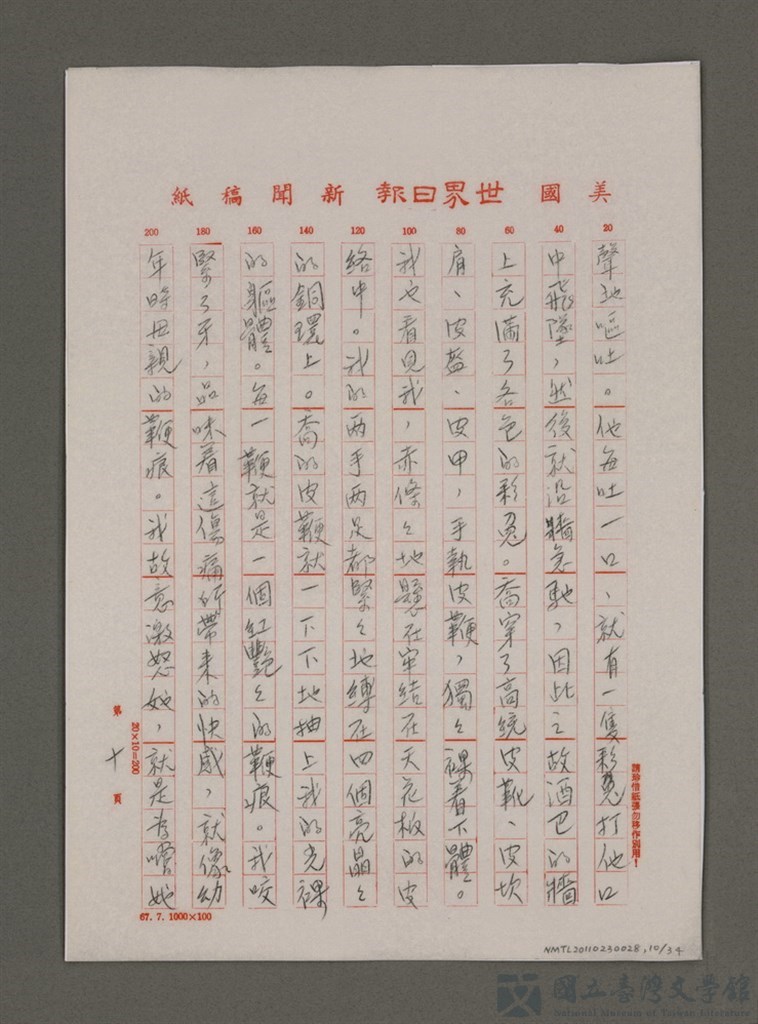 美國世界日報新聞稿紙
20
40
60
80
100
120
140
160
180
200
聲地嘔吐。他每吐一口,就有一隻彩兔打他口
中飛墜,然後就沿牆急馳,因此之故酒巴的牆
上充滿了各色的彩兔。喬穿了高統皮靴、皮坎
肩、皮盔、皮甲,手執皮鞭,獨々裸着下體。
我也看見我,赤條々地懸在牢結在天花板的皮
絡中。我的兩手兩足都緊々地縛在四個亮晶々
的銅環上。喬的皮鞭就一下下地抽上我的光裸
的軀體。每一鞭就是一個紅艷々的鞭痕。我咬
緊了牙,品味着這傷痛所帶來的快感,就像幼
年時母親的鞭痕。我故意激怒她,就是為嚐她
請珍惜紙張勿移作別用!
20×10=200
第十頁
67. 7. 1000×100
NMTL20110230028, 10/34
國立臺灣文學館
National Museum of Taiwan Literature